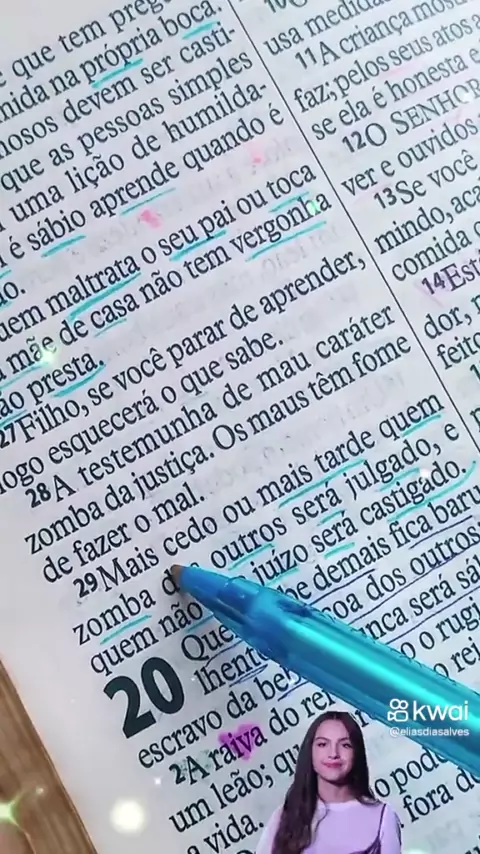 e que tem
mida na própria boca.
devem ser casti-
que as pessoas simples
uma lição de humilda-
é sábio aprende quando é
uem maltrata o seu pai ou toca
mãe de casa não tem vergonha
presta.
27Filho, se você parar de aprender,
logo esquecerá o que sabe.
28A testemunha de mau caráter
zomba da justiça. Os maus têm fome
de fazer o mal.
29Mais cedo ou mais tarde quem
zomba outros será julgado, e
quem não juízo será castigado.
20
Que be demais fica baru
lhent oa dos outros
escravo da be nca será sá
2A raiva do rei o rugi
um leão; qu o pod
a vida. fora d
usa medida
11A criança mos
faz; pelos seus atos
se ela é honesta e
12O SENHOR
ver e ouvidos
13Se você
mindo, aca
comida
14Est
dor,
feito
kwai
@eliasdiasalves